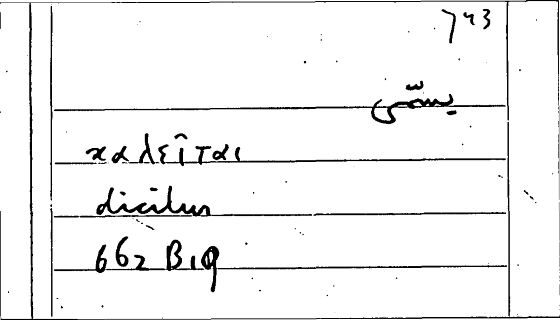 743
يسمّى
καλεῖται
dicitur
662 B 19